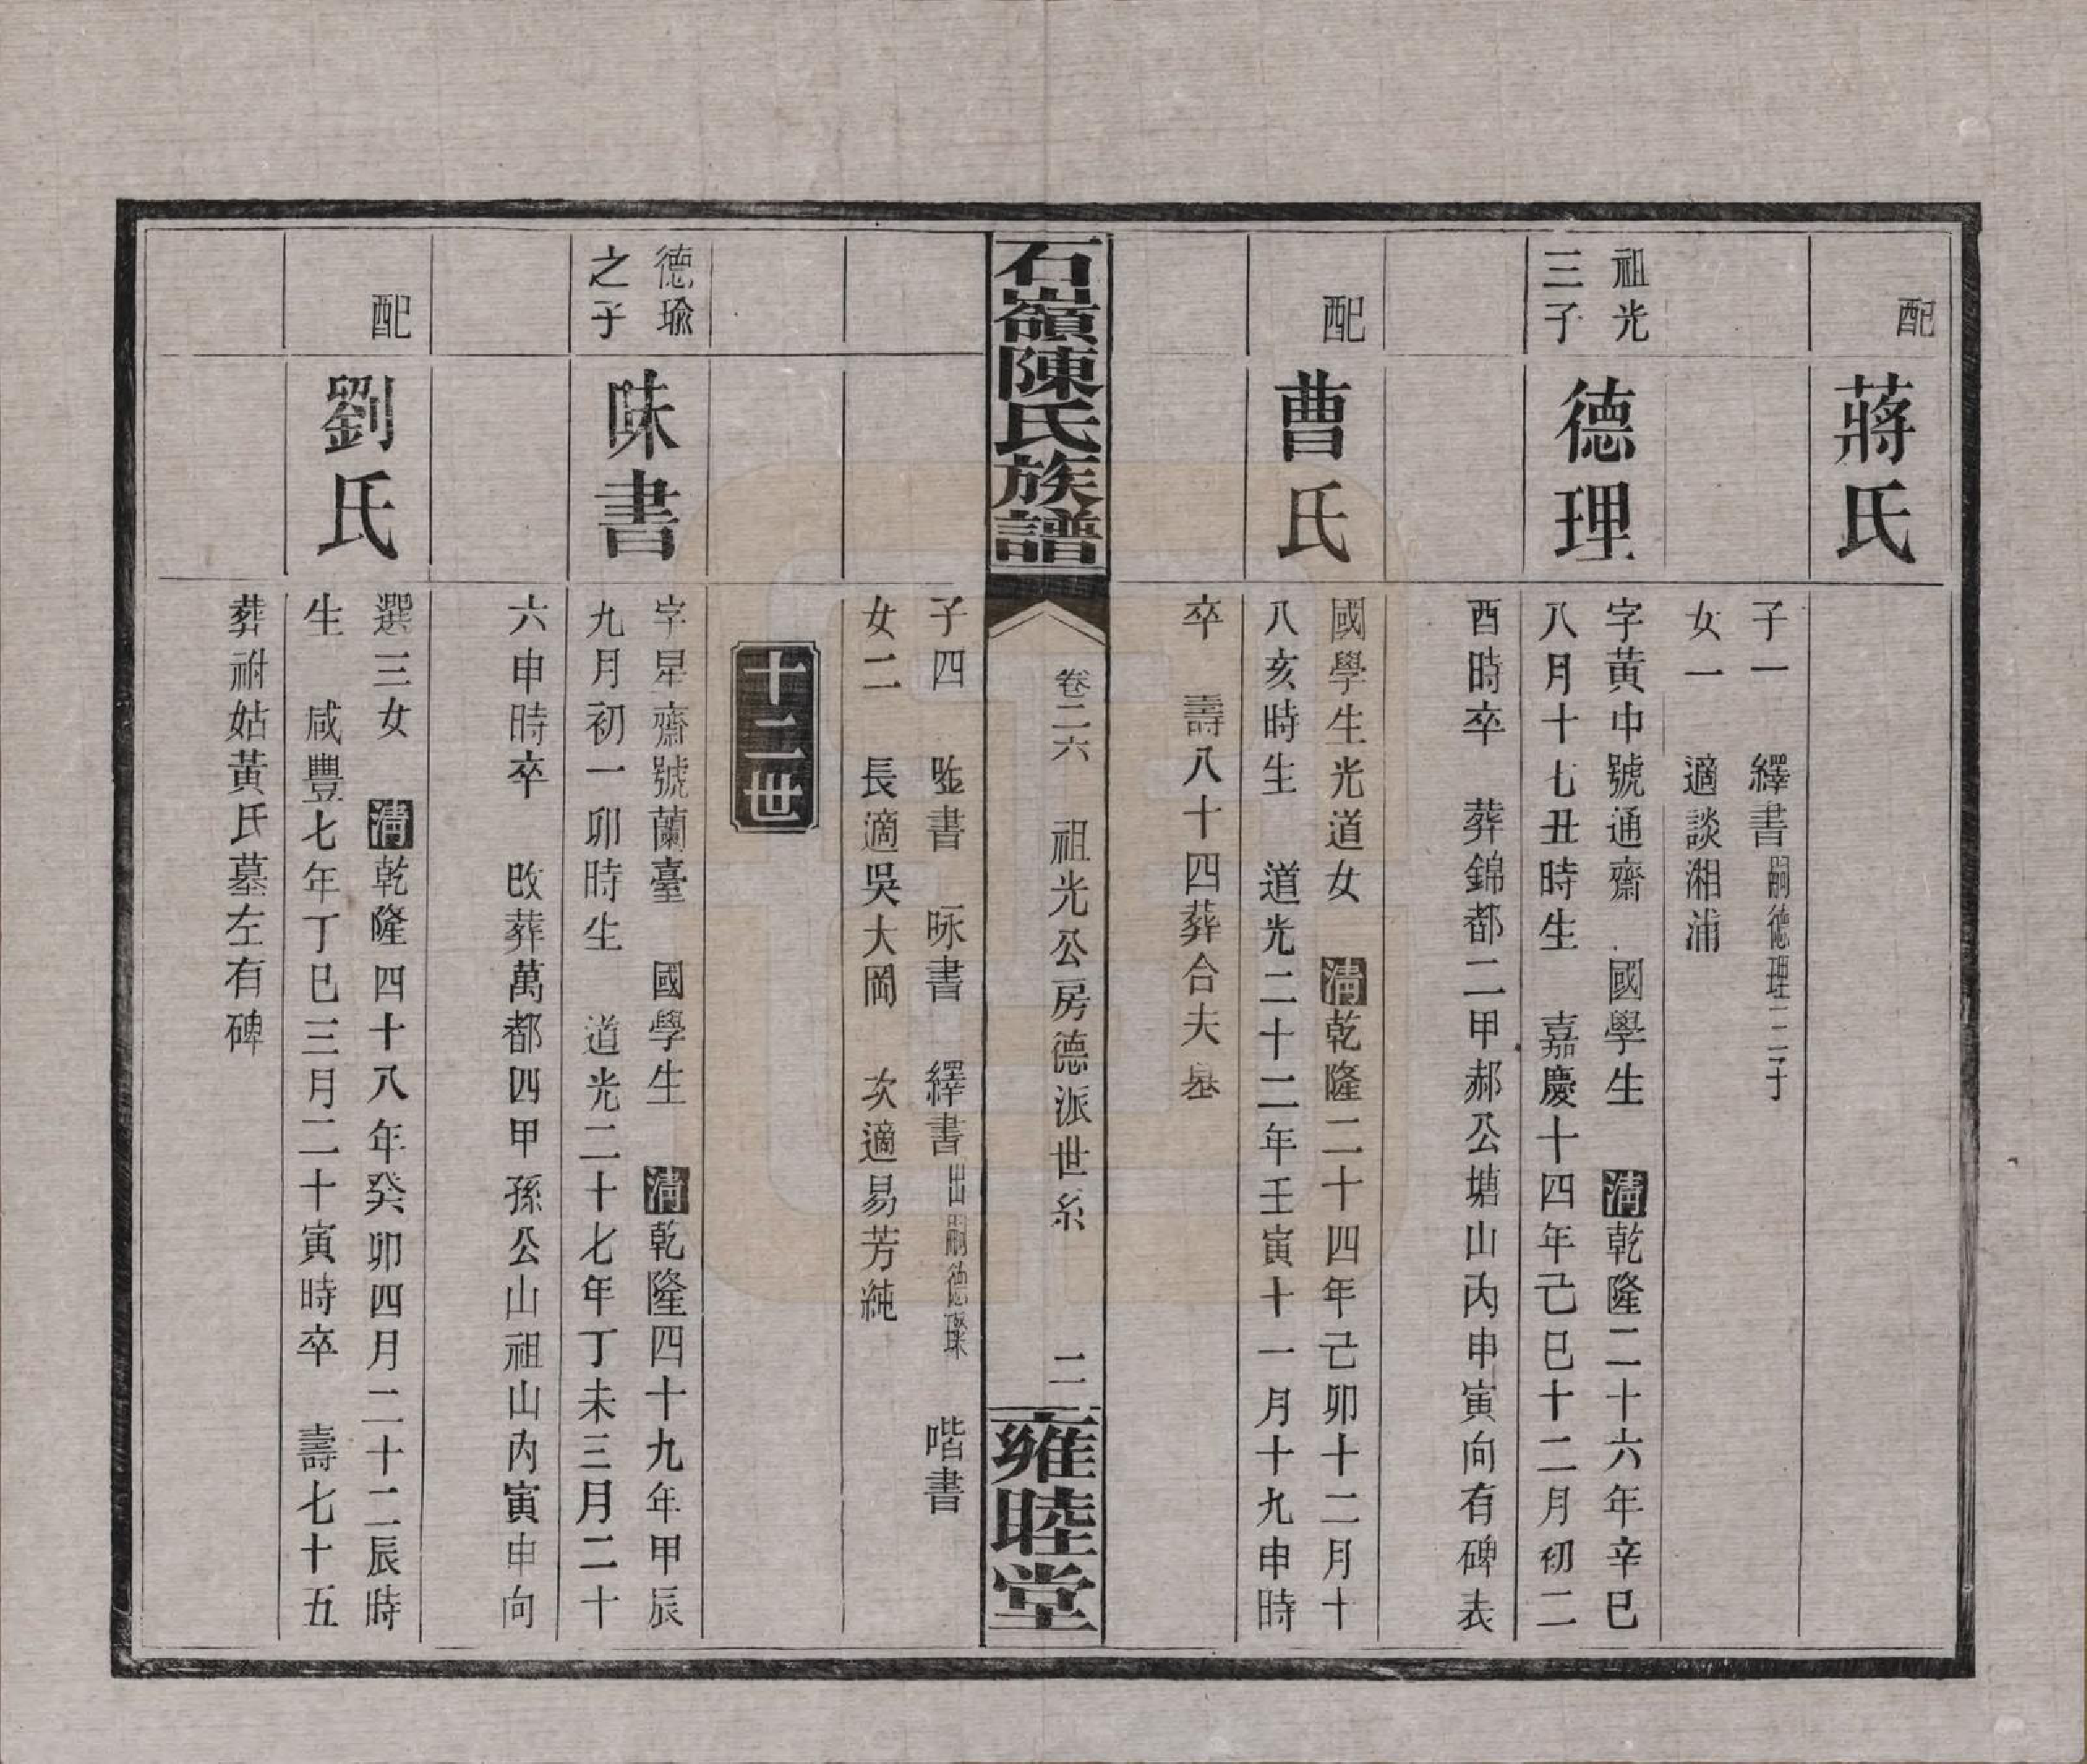 配
蔣氏
子一　繹書嗣德理三子
女一　適談湘浦
祖光
三子
德理
字黃中號通齋　國學生　清乾隆二十六年辛巳
八月十七丑時生　嘉慶十四年己巳十二月初二
酉時卒　葬錦都二甲郝公塘山內申寅向有碑表
配
曹氏
國學生光道女　清乾隆二十四年己卯十二月十
八亥時生　道光二十二年壬寅十一月十九申時
卒　壽八十四葬合夫墓
石嶺陳氏族譜
卷二六　祖光公房德派世系　二
雍睦堂
子四　書　咏書　繹書出嗣德璨　喈書
女二　長適吳大岡　次適易芳純
十二世
德瑜
之子
味書
字星齋號蘭臺　國學生　清乾隆四十九年甲辰
九月初一卯時生　道光二十七年丁未三月二十
六申時卒　改葬萬都四甲孫公山祖山內寅申向
配
劉氏
選三女　清乾隆四十八年癸卯四月二十二辰時
生　咸豐七年丁巳三月二十寅時卒　壽七十五
葬祔姑黃氏墓左有碑